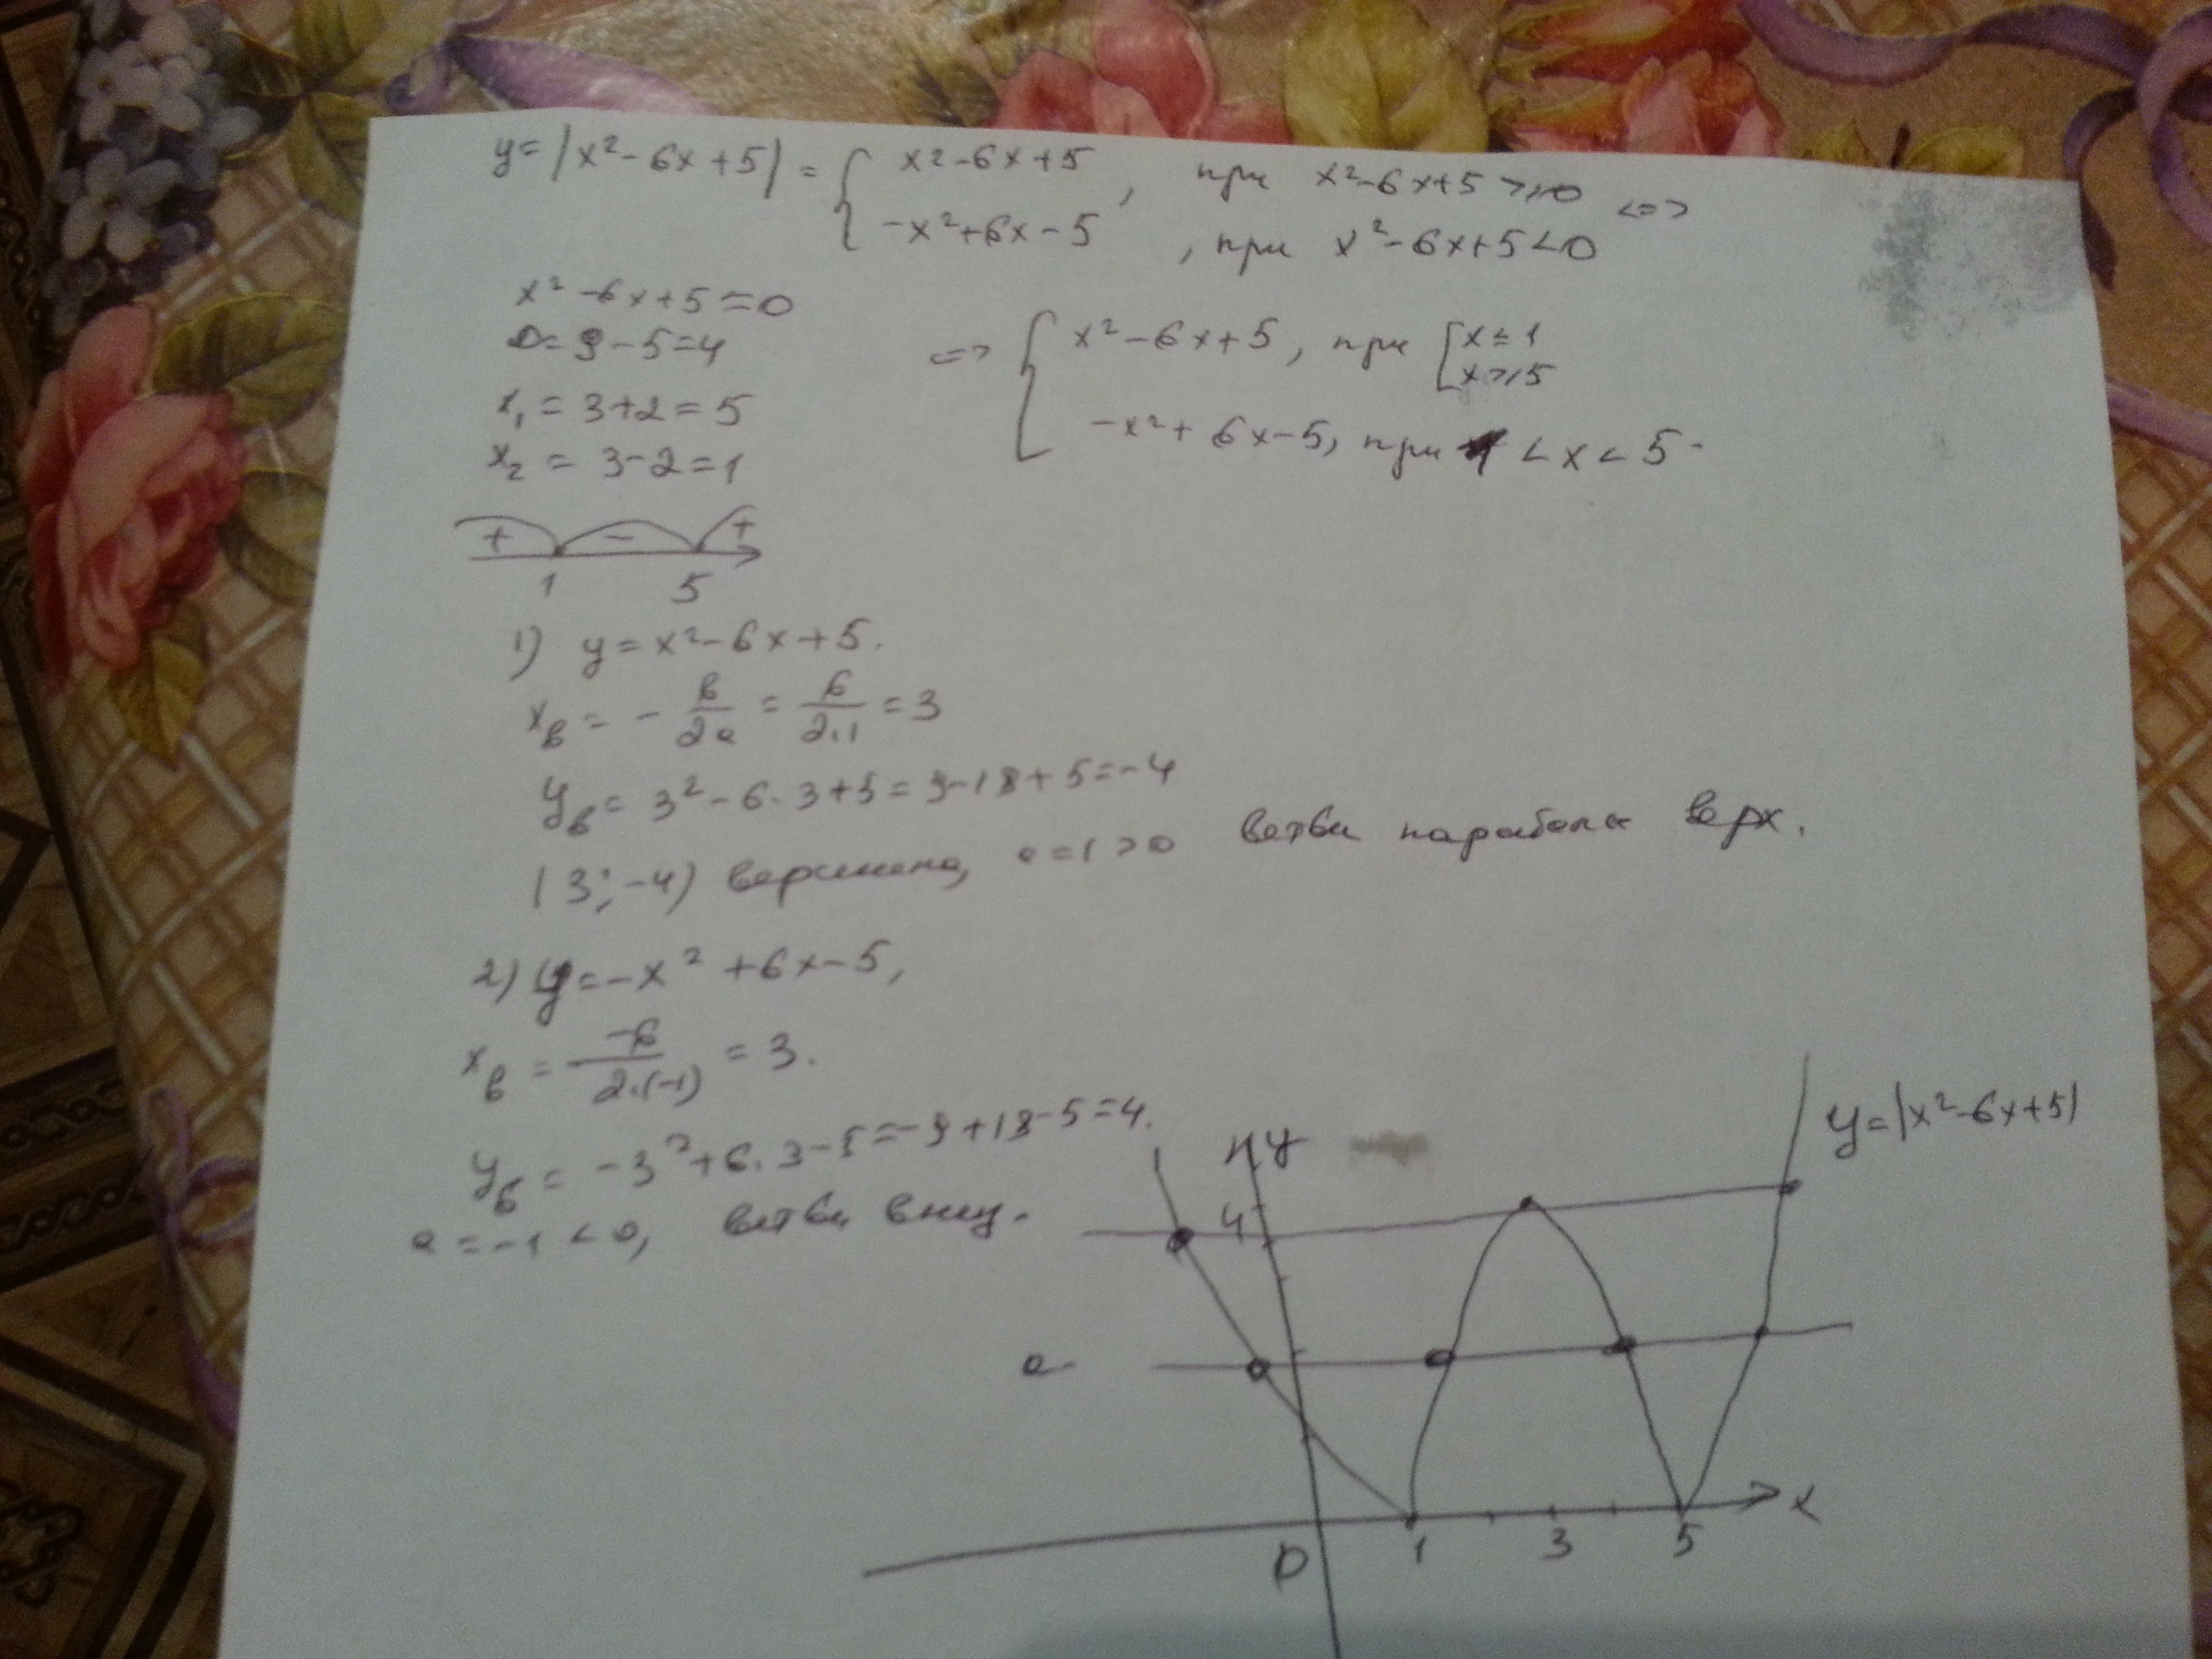 y = |x² - 6x + 5| = { x² - 6x + 5 , при x² - 6x + 5 ≥ 0
-x² + 6x - 5 , при x² - 6x + 5 < 0 <=>
x² - 6x + 5 = 0
D = 9 - 5 = 4
x₁ = 3 + 2 = 5
x₂ = 3 - 2 = 1
<=> { x² - 6x + 5, при [ x ≤ 1
x ≥ 5
-x² + 6x - 5, при 1 < x < 5.
+ - +
1 5
1) y = x² - 6x + 5.
xв = - в/2a = 6/2·1 = 3
yв = 3² - 6·3 + 5 = 9 - 18 + 5 = -4
(3; -4) вершина, a = 1 > 0 ветви параболы верх.
2) y = -x² + 6x - 5,
xв = -6/2·(-1) = 3.
yв = -3² + 6·3 - 5 = -9 + 18 - 5 = 4.
a = -1 < 0, ветви вниз.
y
y = |x² - 6x + 5|
4
a
0 1 3 5 x